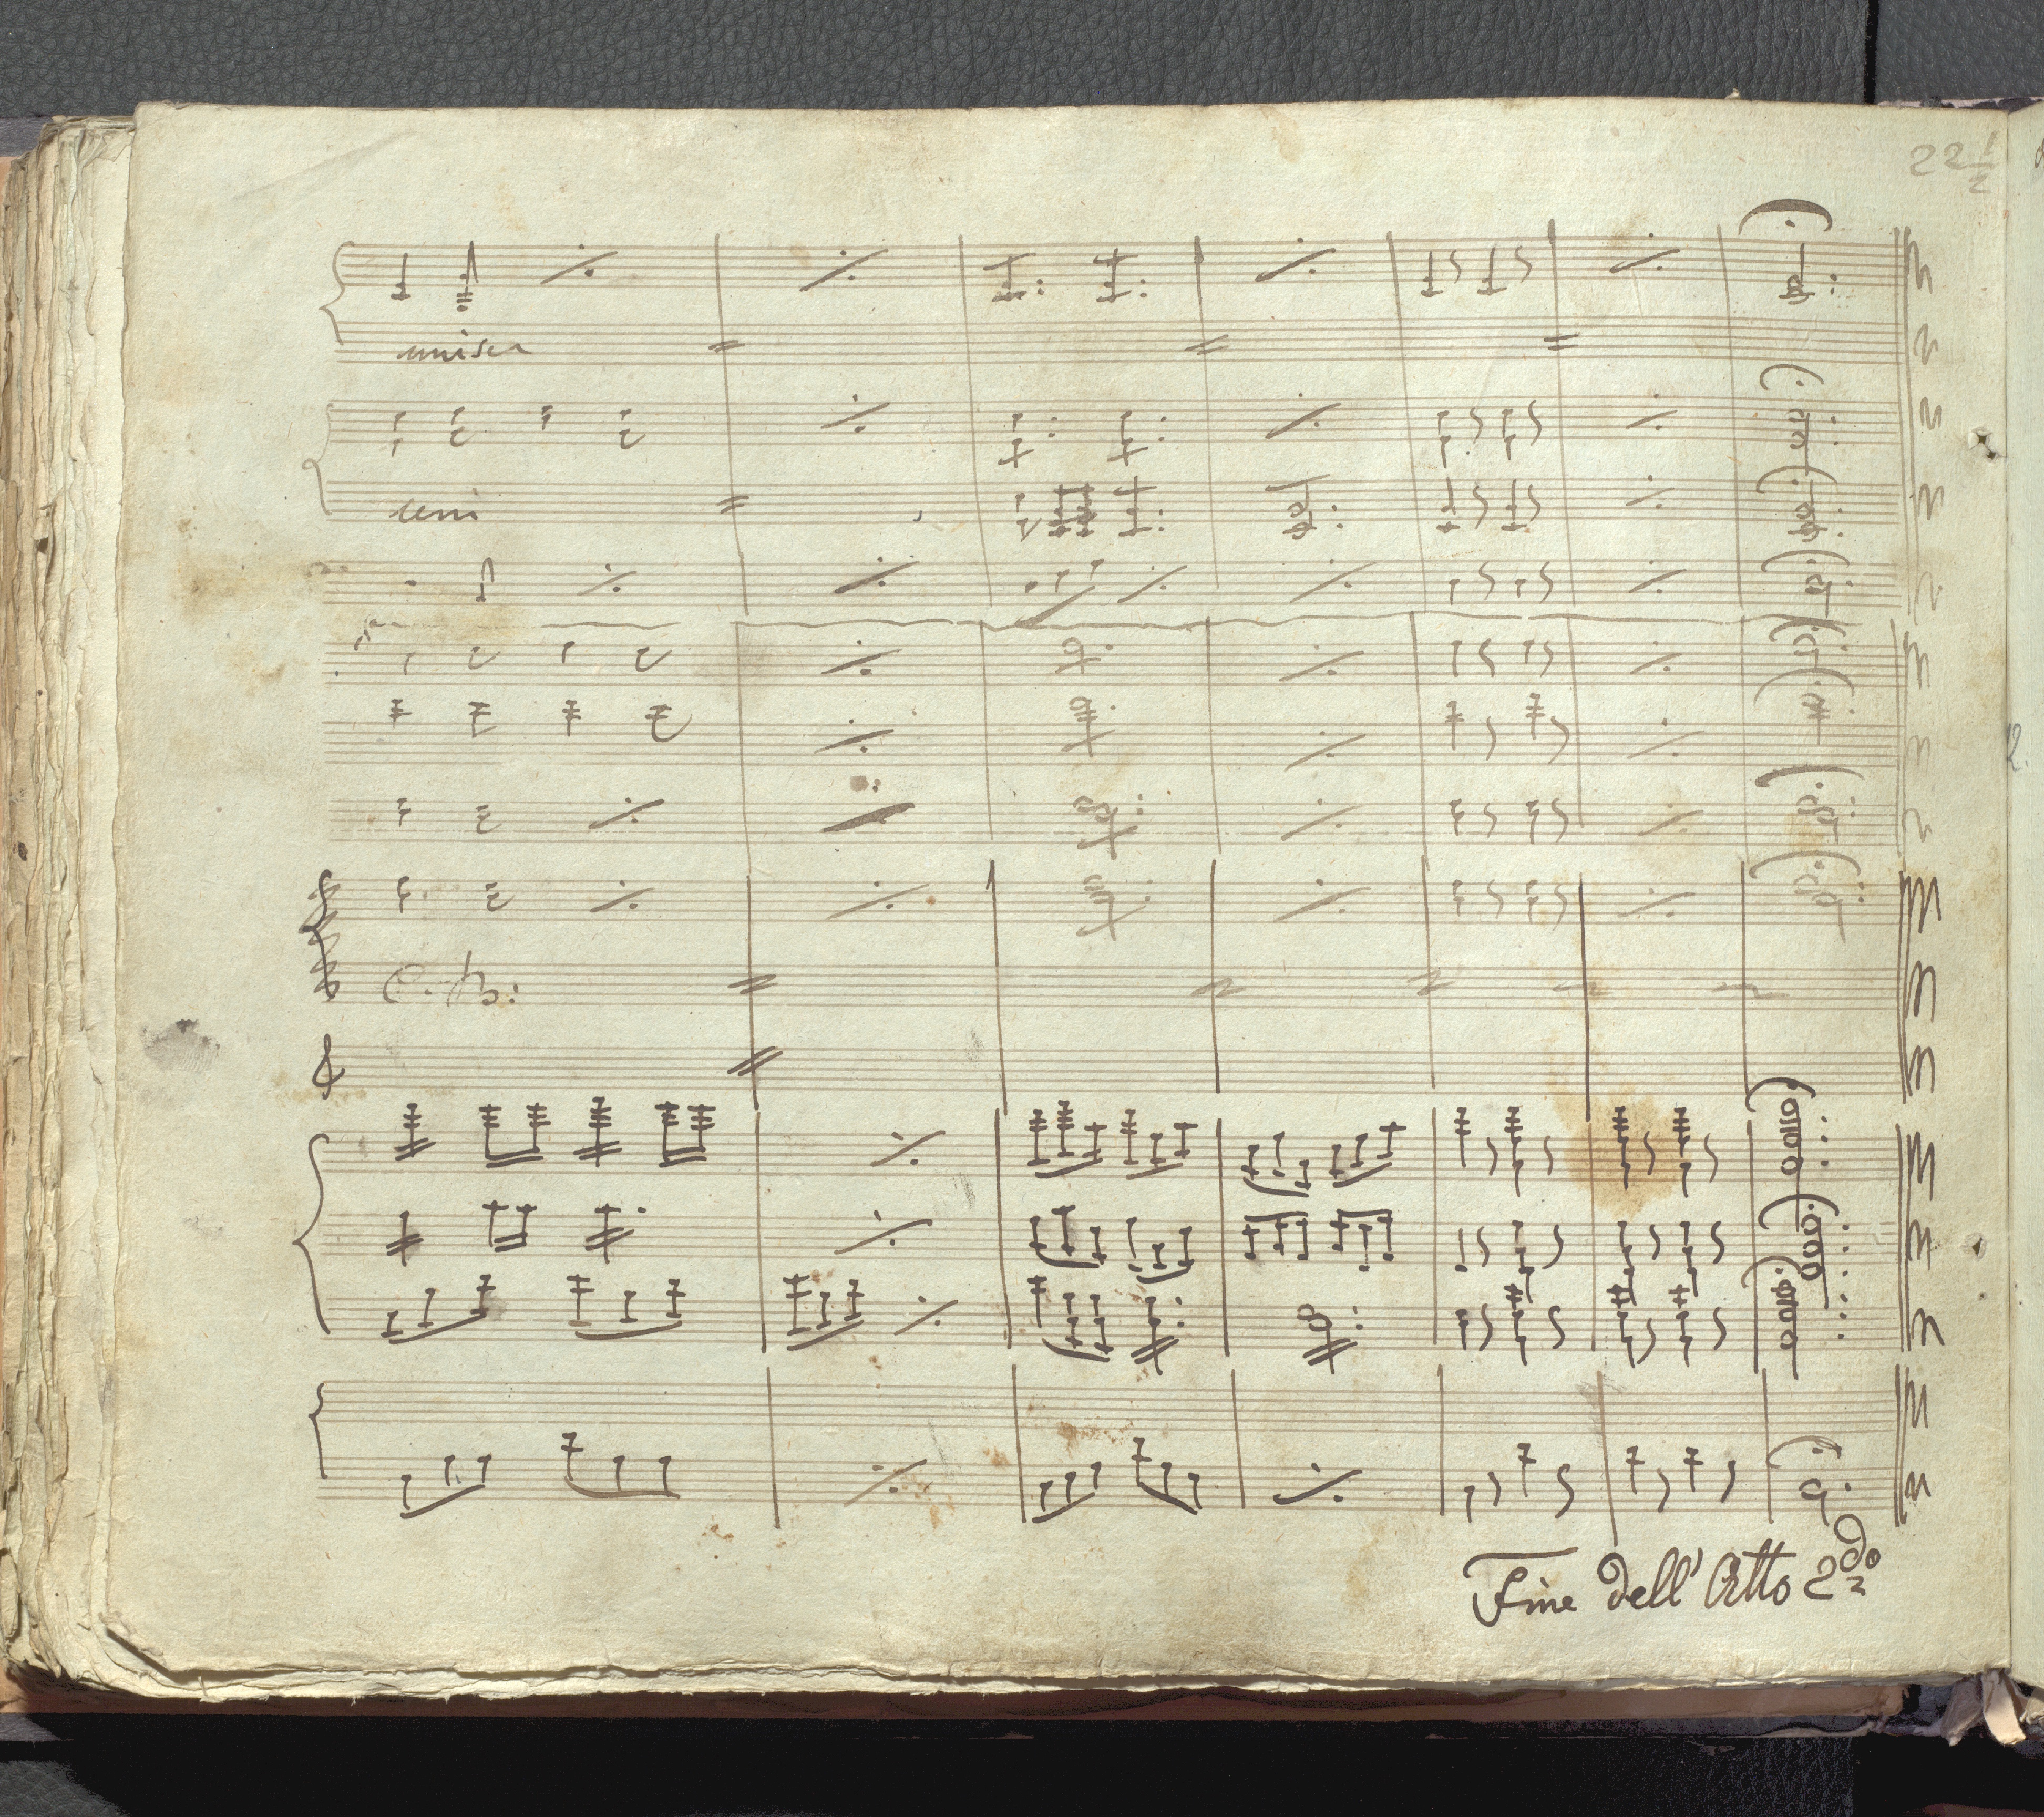 22 1/2
unis
uni
C. B:
Fine dell' Atto 2do